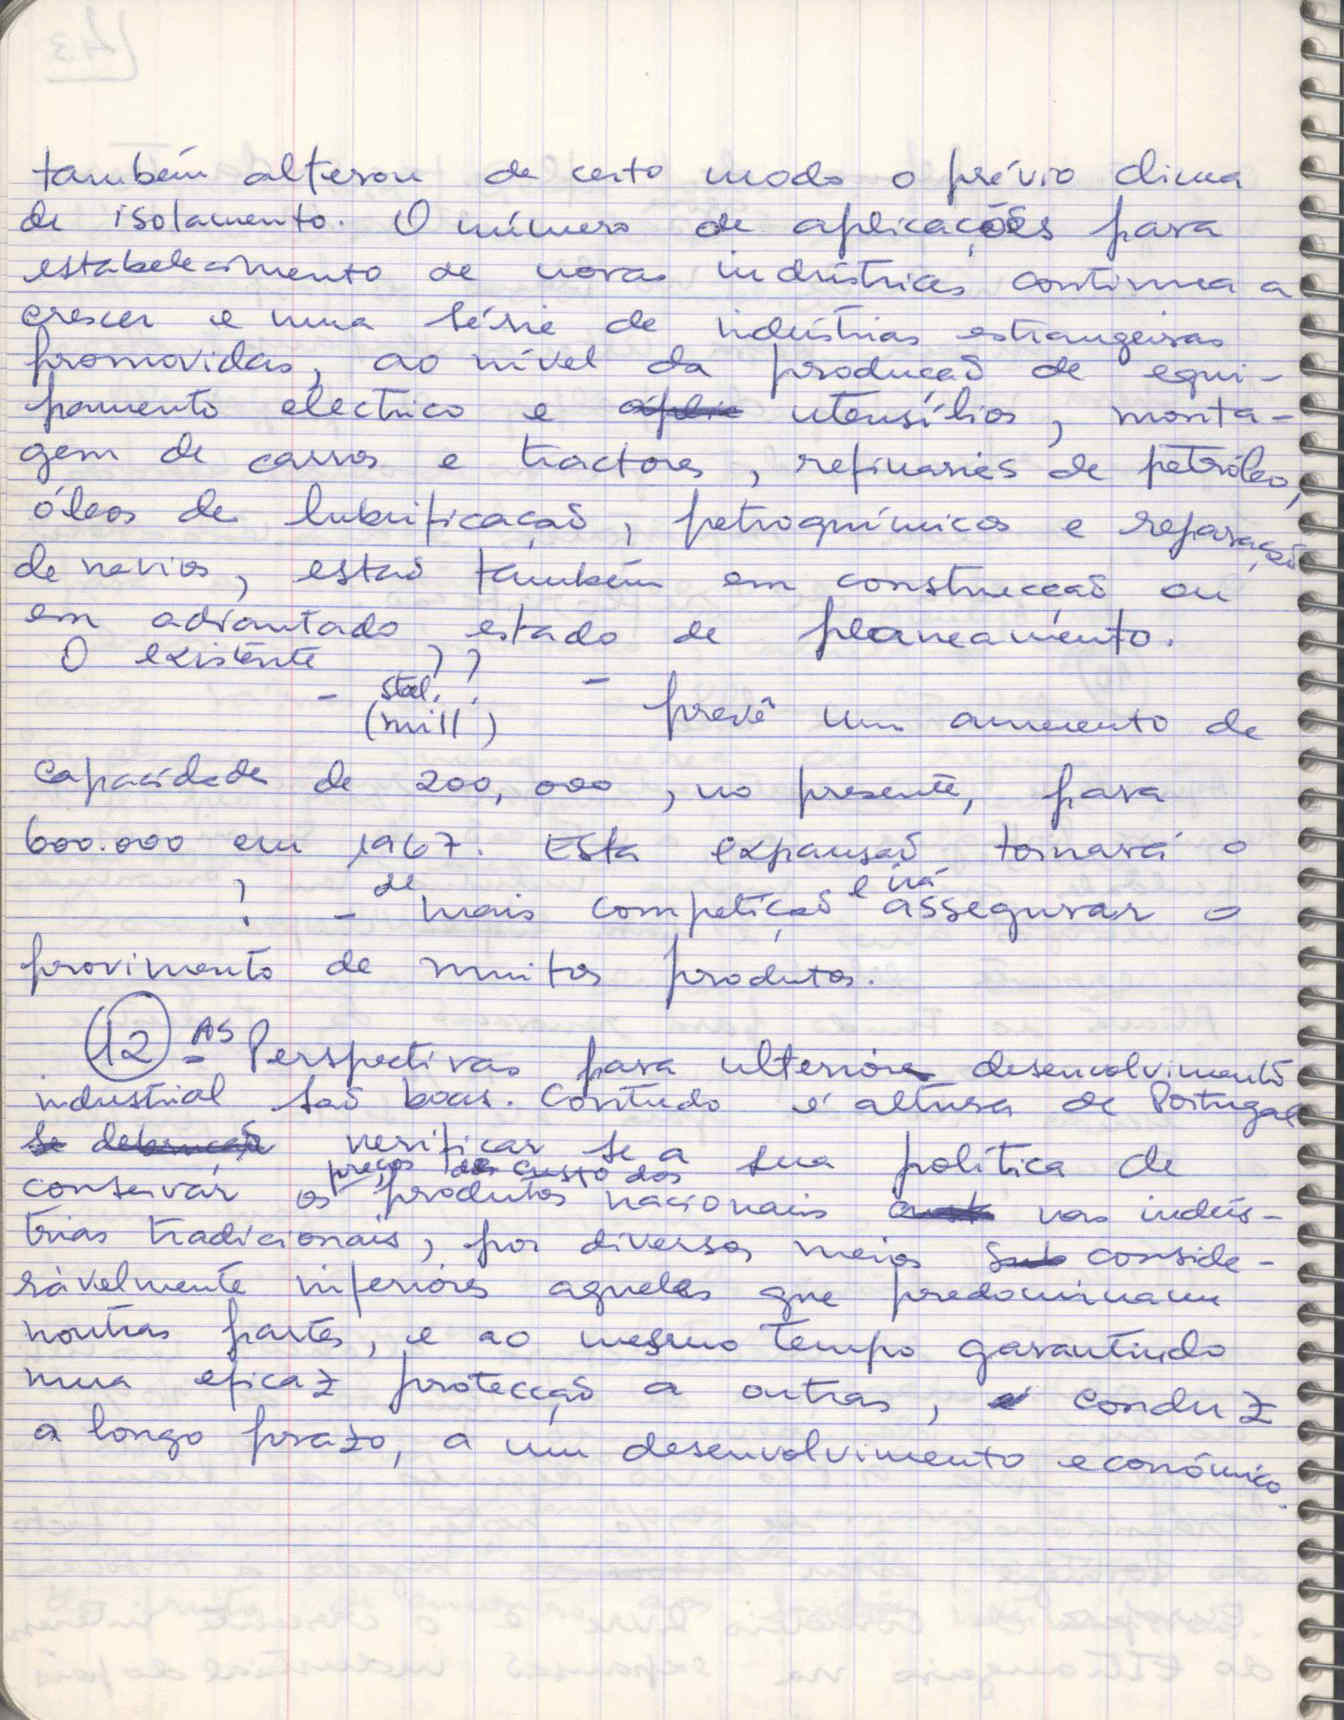 também alterou de certo modo o prévio clima
de isolamento. O número de aplicações para
estabelecimento de novas indústrias continua a
crescer e uma série de indústrias estrangeiras
promovidas, ao nível da produção de equi-
pamento electrico e utensílios, monta-
gem de carros e tractores, refinaries de petróleo,
óleos de lubrificação, petroquímicos e reparação
de navios, estão também em construcção ou
em adiantado estado de planeamento.
O existente ??
- stal. ? -
(mill) prevê um aumento de
capacidade de 200,000, no presente, para
600.000 em 1967. Esta expansão tornará o
? - de mais competição e irá assegurar o
provimento de muitos produtos.
(12) - As Perspectivas para ulterior desenvolvimento
industrial são boas. Contudo é altura de Portugal
se debruçar verificar se a sua política de
conservar os preços de custo dos produtos nacionais nas indús-
trias tradicionais, por diversos meios conside-
ràvelmente inferiores aqueles que predominam
noutras partes, e ao mesmo tempo garantindo
uma eficaz protecção a outras, conduz
a longo prazo, a um desenvolvimento económico.